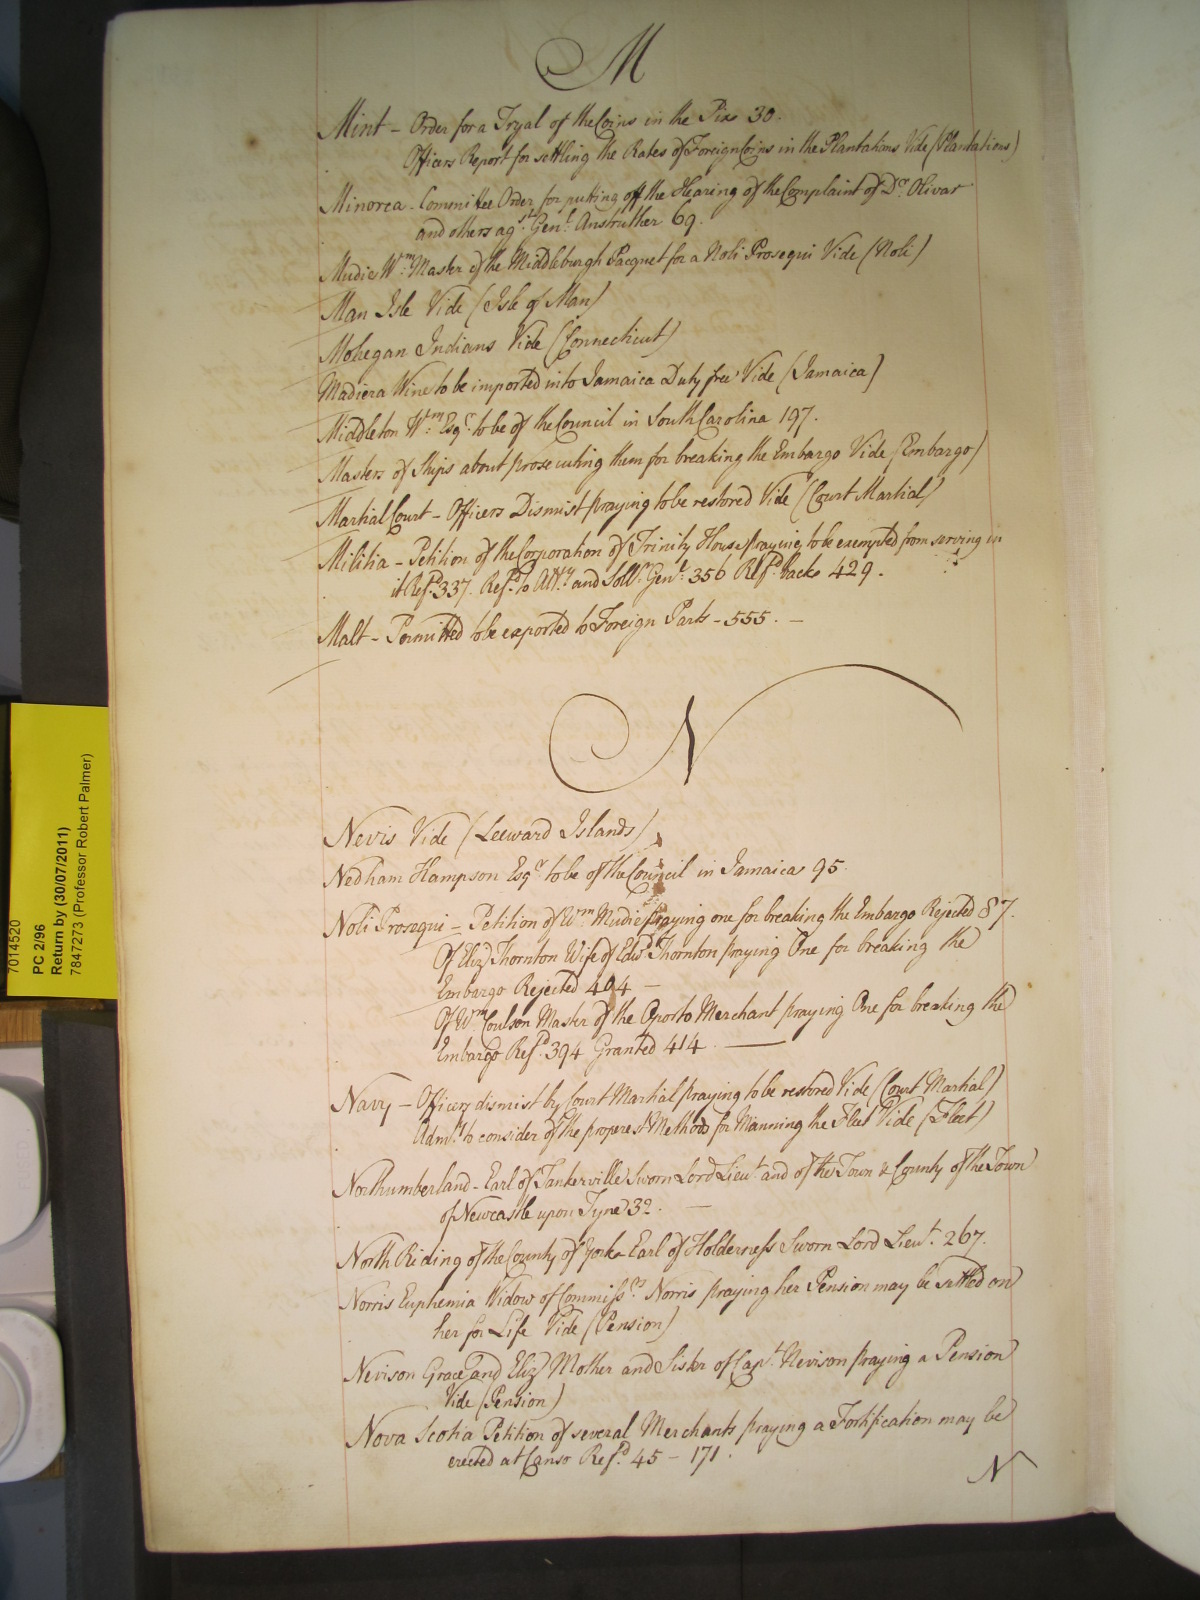 M
Mint - Order for a Tryal of the Coins in the Pixs 30.
Officers Report for settling the Rates of Foreign Coins in the Plantations Vide (Plantations)
Minorca - Committee Order for putting off the Hearing of the Complaint of Dr. Olivar
and others agst. Genl. Anstruther 69.
Mudie Wm. Master of the Middleburgh Pacquet for a Noli Prosequi Vide (Noli)
Man Isle Vide (Isle of Man)
Mohegan Indians Vide (Connecticut)
Madiera Wine to be imported into Jamaica Duty free Vide (Jamaica)
Middleton Wm. Esqr. to be of the Council in South Carolina 197.
Masters of Ships about prosecuting them for breaking the Embargo Vide (Embargo)
Martial Court - Officers Dismist praying to be restored Vide (Court Martial)
Militia - Petition of the Corporation of Trinity House praying to be exempted from serving in
it Refd. 337. Refd. to Atty. and Sollr. Genl. 356 Refd. back 429.
Malt - Permitted to be exported to Foreign Parts - 555. -
N
Nevis Vide (Leeward Islands)
Nedham Hampson Esqr. to be of the Council in Jamaica 95.
Noli Prosequi - Petition of Wm. Mudie praying one for breaking the Embargo Rejected 87.
Of Eliz Thornton Wife of Edwd. Thornton praying One for breaking the
Embargo Rejected 404 -
Of Wm. Coulson Master of the Oporto Merchant praying One for breaking the
Embargo Refd. 394 Granted 414. -
Navy - Officers dismist by Court Martial praying to be restored Vide (Court Martial)
Admty. to consider of the properest Methods for Manning the Fleet Vide (Fleet)
Northumberland - Earl of Tankerville Sworn Lord Lieut. and of the Town & County of the Town
of Newcastle upon Tyne 32. -
North Riding of the County of York - Earl of Holderness Sworn Lord Lieut. 267.
Norris Euphemia Widow of Commissr. Norris praying her Pension may be settled on
her for Life Vide (Pension)
Nevison Grace and Eliz Mother and Sister of Capt. Nevison praying a Pension
Vide (Pension)
Nova Scotia Petition of several Merchants praying a Fortification may be
erected at Canso Refd. 45 - 171.
N
7014520
PC 2/96
Return by (30/07/2011)
7847273 (Professor Robert Palmer)